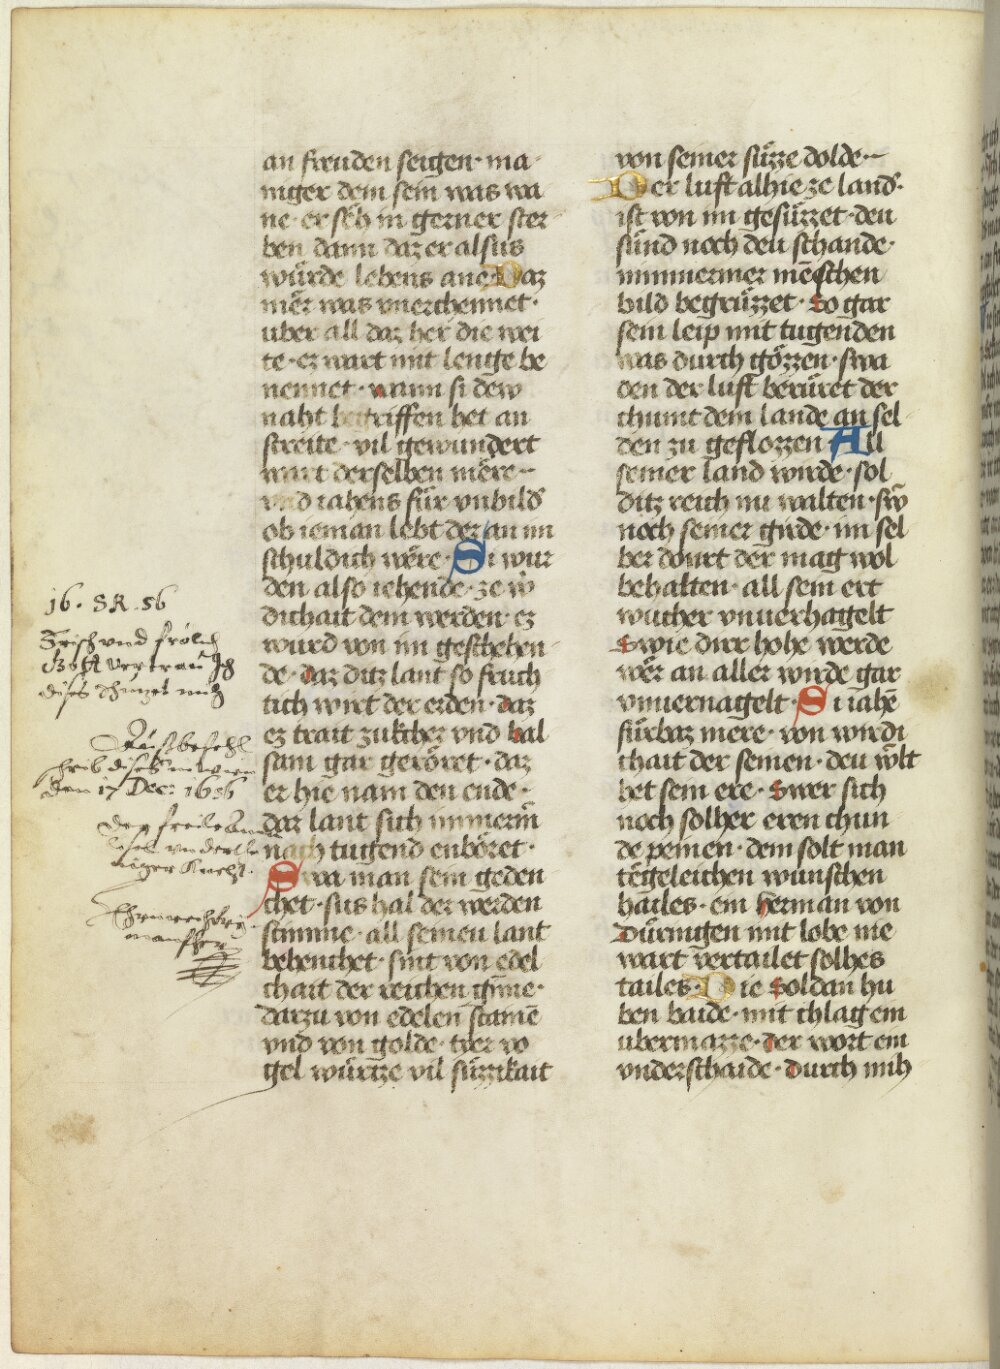 an freuden seigen · ma-
niger dem sein was wa
ne · er seh in gerner ster-
ben dann daz er alsus
würde lebens ane · Daz
mer was vnerchennet ·
uber all daz her die wei
te · ez wart mit lenge be
nennet · wann si dew
naht begriffen het an
streite · vil gewundert
wart derselben mere ·
vnd iahens für vnbild
ob ieman lebt der an im
schuldich were · Si wur
den also iehende · ze w
dichait dem werden · ez
wurd von im geschehen-
de · daz ditz lant so fruch
tich wirt der erden · daz
ez trait zukcher vnd bal
sam gar geröret · daz
er hie nam den ende ·
daz lant sich immerm
nach tugend enböret ·
Swa man sein geden
chet · sus hal der werden
stimme · all seinen lant
bebenchet · sint von edel
chait der reichen gimme ·
darzu von edelen stame
vnd von golde · wer vo
gel würtze vil süzzikait
von seiner süzze dolde ·
Der luft alhie ze land ·
ist von im gesüzzet · deu
sünd noch deu schande ·
nimmermer menschen
bild begrüzzet · So gar
sein leip mit tugenden
was durch gözzen · swa
den der luft berüret der
chumt dem lande an sel
den zu geflozzen All
seiner land wirde · sol
ditz reich nu walten · sw
noch seiner girde · im sel
ber dourt der mag wol
behalten · all sein ert
wucher vnuerhagelt
Swie dirr hohe werde
wer an aller wirde gar
vnuernagelt · Si iahe
fürbaz mere · von wirdi
chait der seinen · deu welt
het sein ere · Swer sich
noch solher eren chun
de peinen · dem solt man
tegeleichen wunschen
hailes · ein herman von
Dürnigen mit lobe nie
wart vertailet solhes
tailes · Die Soldan hu
ben baide · mit chlag ein
ubermazze · der wort ein
vnderschaide · durch mih
16 · SR · 56
Frisch vnd frölich
Gott vertrau Ich
dises
schrib dises
den 17 Dec: 1656